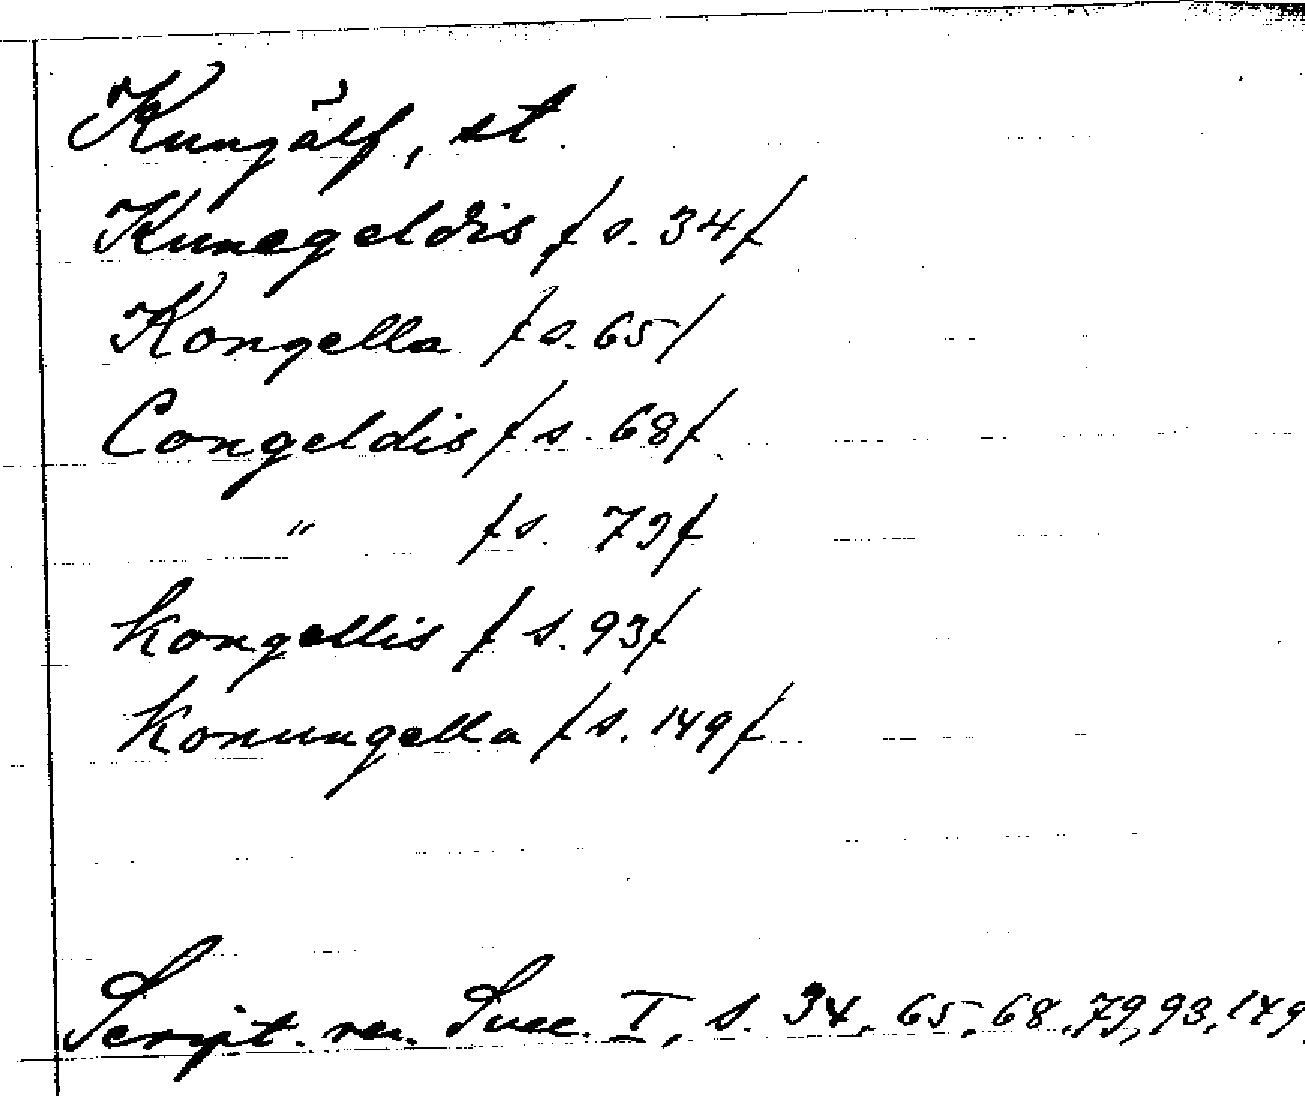 Kungälf, st.
Kunegeldis /s. 34/
Kongella /s. 65/
Congeldis /s. 68/
" /s. 79/
Kongellis /s. 93/
Konungella /s. 149/
Script. rer. Suec. I, s. 34, 65, 68, 79, 93, 149